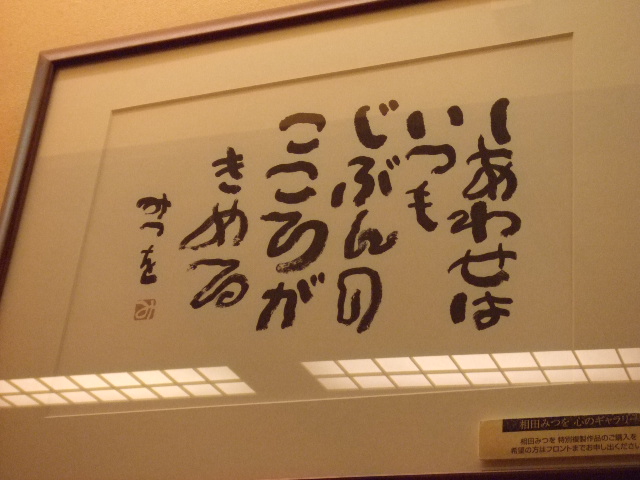 しあわせは
いつも
じぶんの
こころが
きめる
みつを
み
相田みつを 心のギャラリー
相田みつを 特別複製作品のご購入を
希望の方はフロントまでお申し出ください